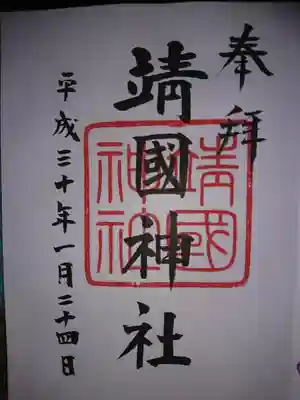 奉拝
靖國神社
靖國神社
平成三十年一月二十四日